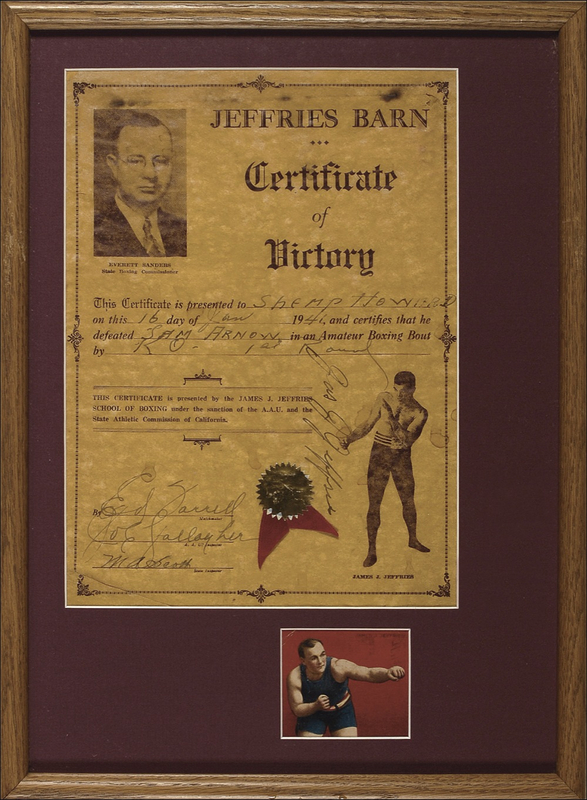 JEFFRIES BARN
Certificate
of
Victory
EVERETT SANDERS
State Boxing Commissioner
This Certificate is presented to SHEMP HOWARD
on this 16 day of Jan 1941, and certifies that he
defeated SAM ARNOW, in an Amateur Boxing Bout
by K.O. - 1st Round
THIS CERTIFICATE is presented by the JAMES J. JEFFRIES
SCHOOL OF BOXING under the sanction of the A.A.U. and the
State Athletic Commission of California.
Jas J Jeffries
By
Joe Gallagher
JAMES J. JEFFRIES